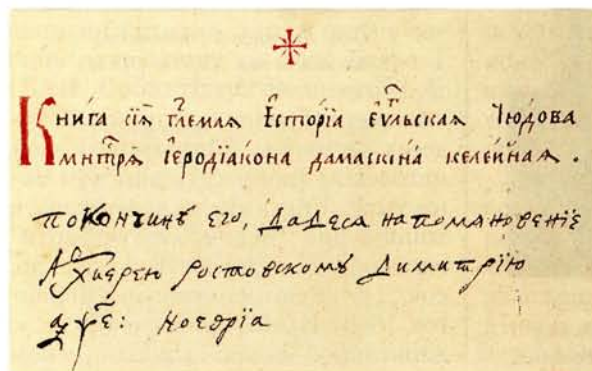 Книга сїѧ гл҃емаѧ Єсторїа єѵⷢ҇льскаѧ Чюдова
мнтⷭ҇рѧ їеродїакона дамаскина келейнаѧ .
по кончинѣ его, дадеся на помановенїе
Архїерею ростовскому Димитрїю
ноеврїа